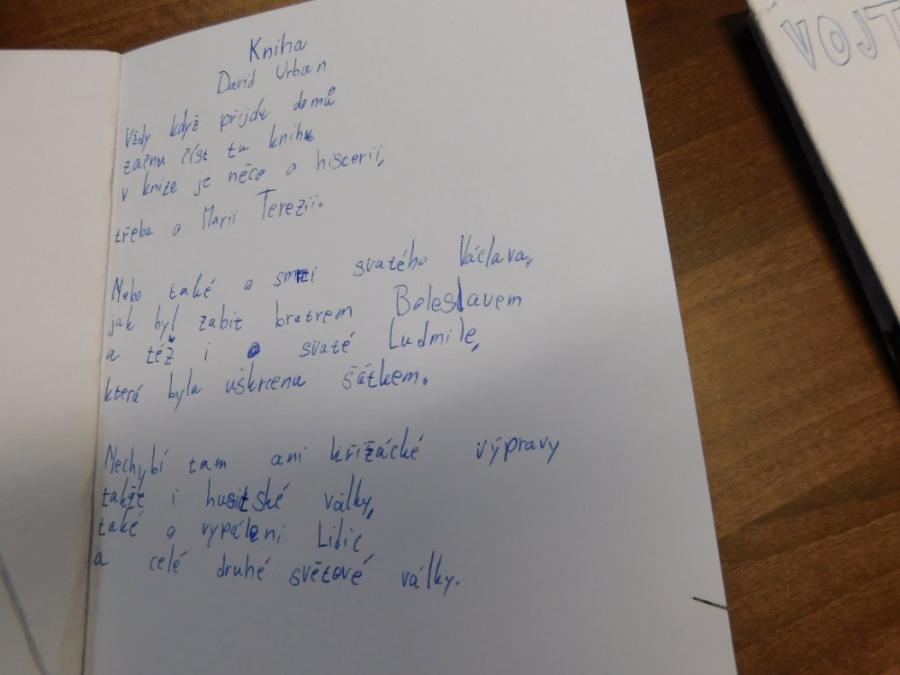 Kniha
David Urban
Vždy když přijdu domů
začnu číst tu knihu
v knize je něco o historii,
třeba o Marii Terezii.
Nebo také o smrti svatého Václava,
jak byl zabit bratrem Boleslavem
a též i o svaté Ludmile,
která byla uškrcena šátkem.
Nechybí tam ani křižácké výpravy
takže i husitské války,
také o vypálení Lidic
a celé druhé světové války.
VOJT